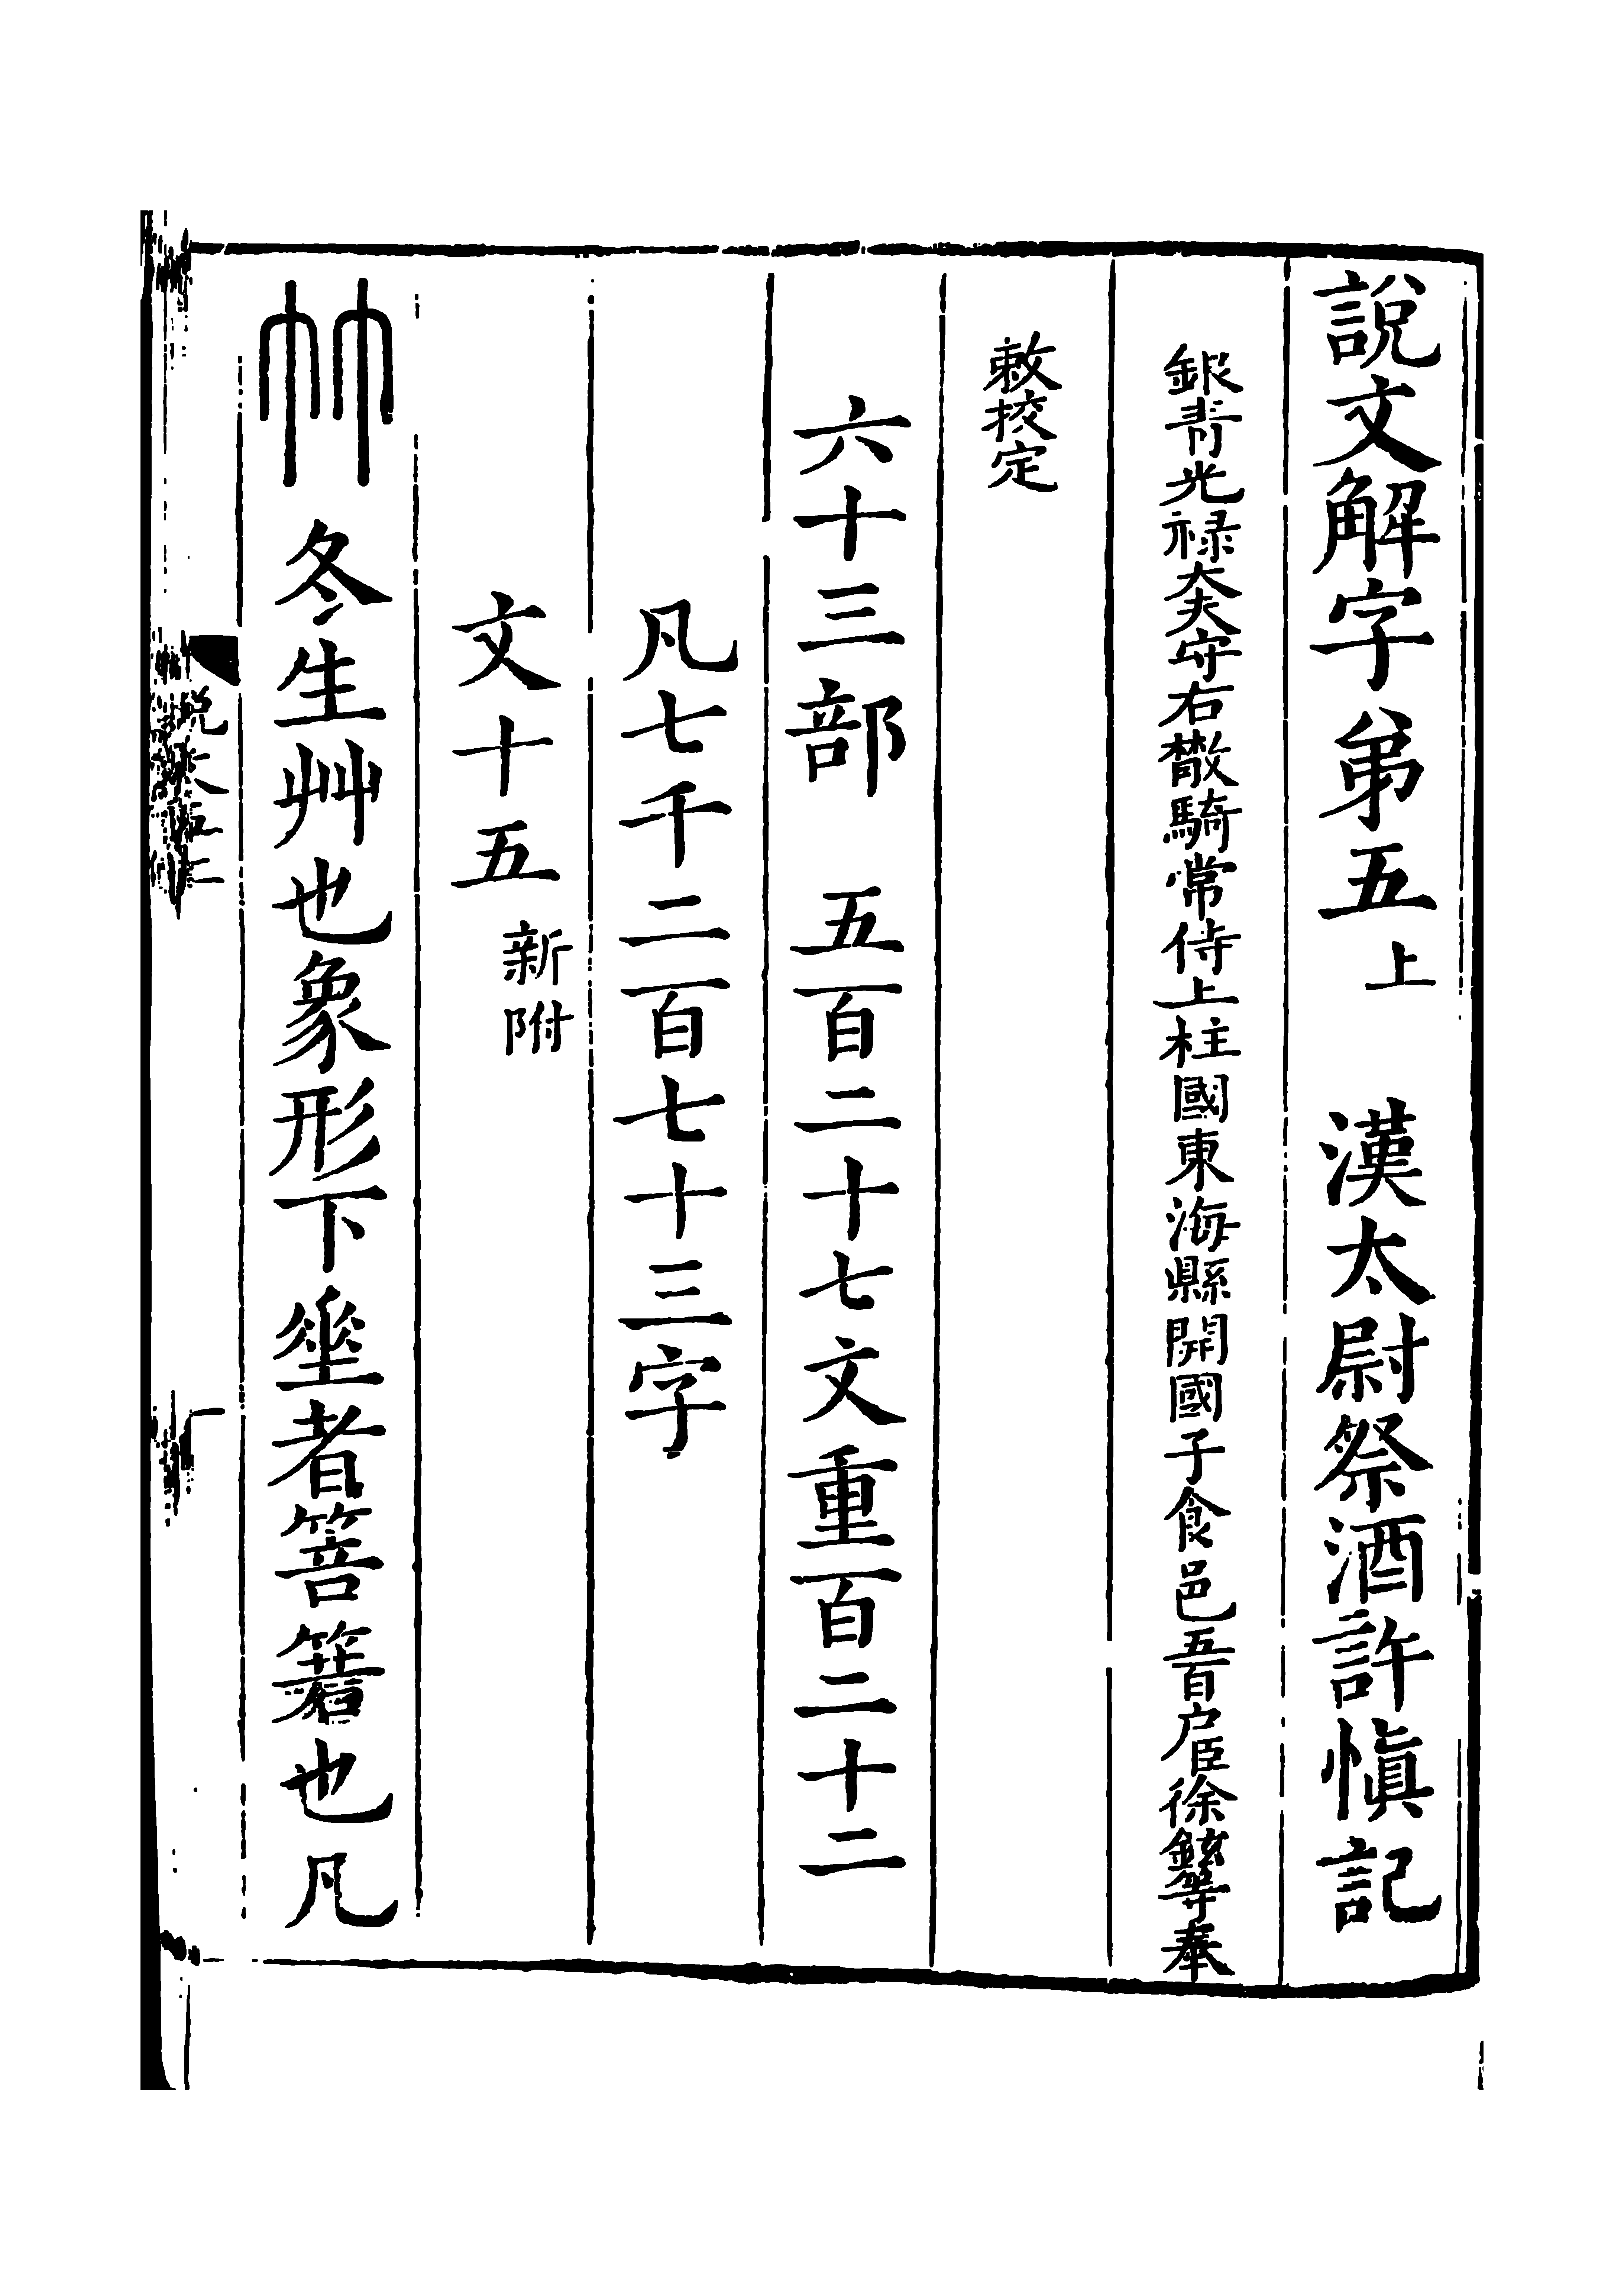 說文解字弟五上 漢太尉祭酒許慎記
銀青光禄大夫守右散騎常侍上柱國東海縣開國子食邑五百户臣徐鉉等奉
敕挍定
六十三部 五百二十七文重百二十二
凡七千二百七十三字
文十五 新附
竹 冬生艸也象形下垂者箁箬也凡